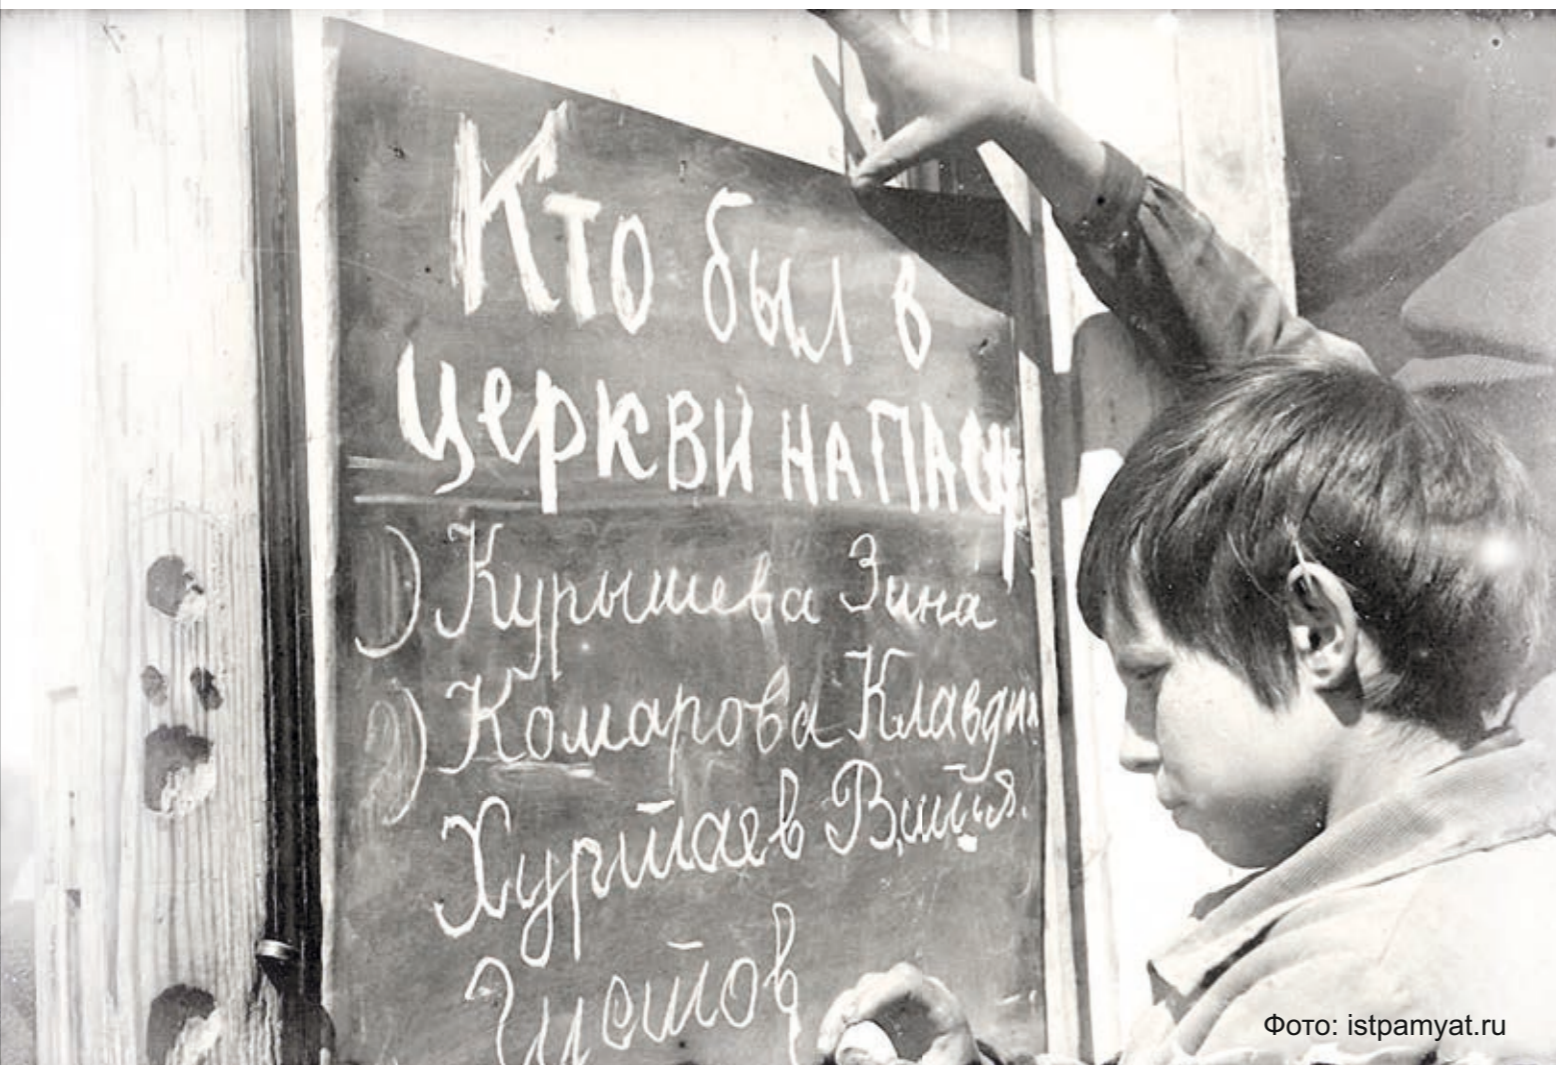 Кто был в
церкви на пасху
1) Курышева Зина
2) Комарова Клавдия
Хуртаев Витя.
Чистов
Фото: istpamyat.ru